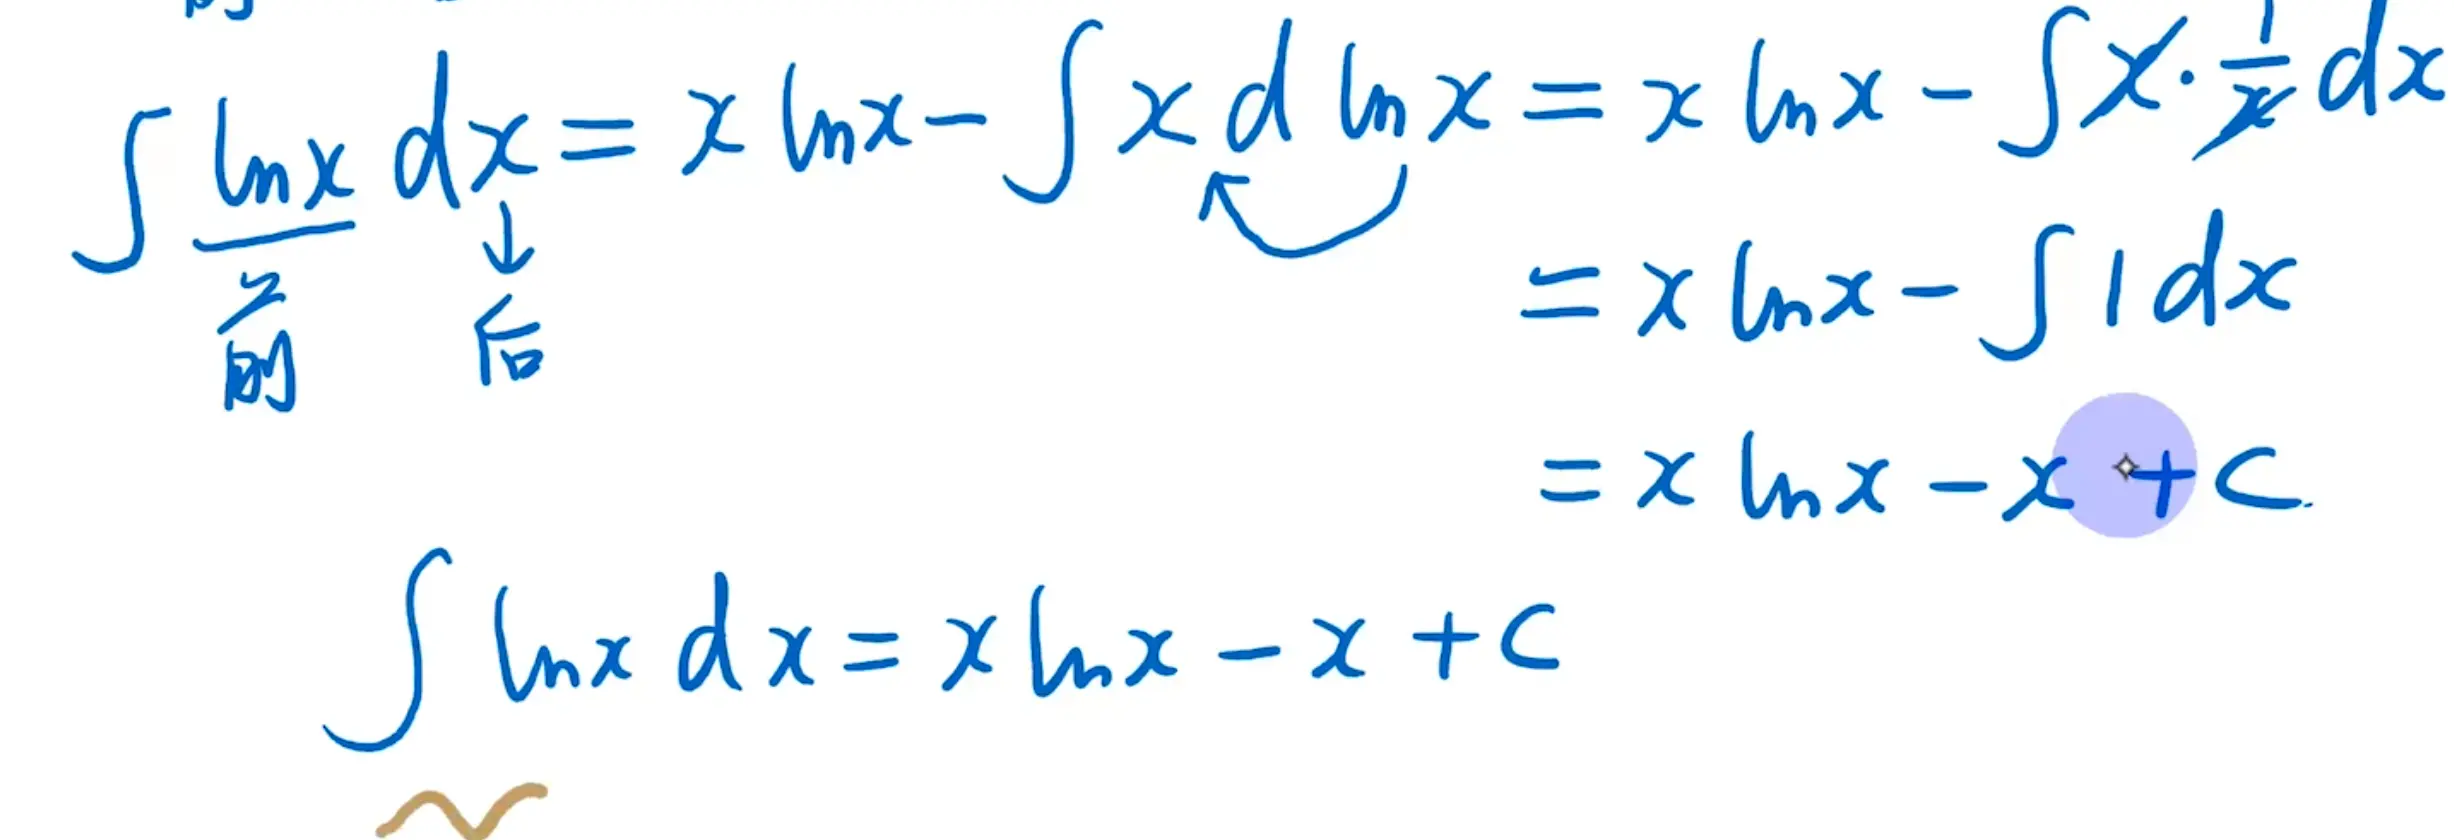 ∫ ln x dx = x ln x - ∫ x d ln x = x ln x - ∫ x · 1/x dx
前 后
= x ln x - ∫ 1 dx
= x ln x - x + C.
∫ ln x dx = x ln x - x + C